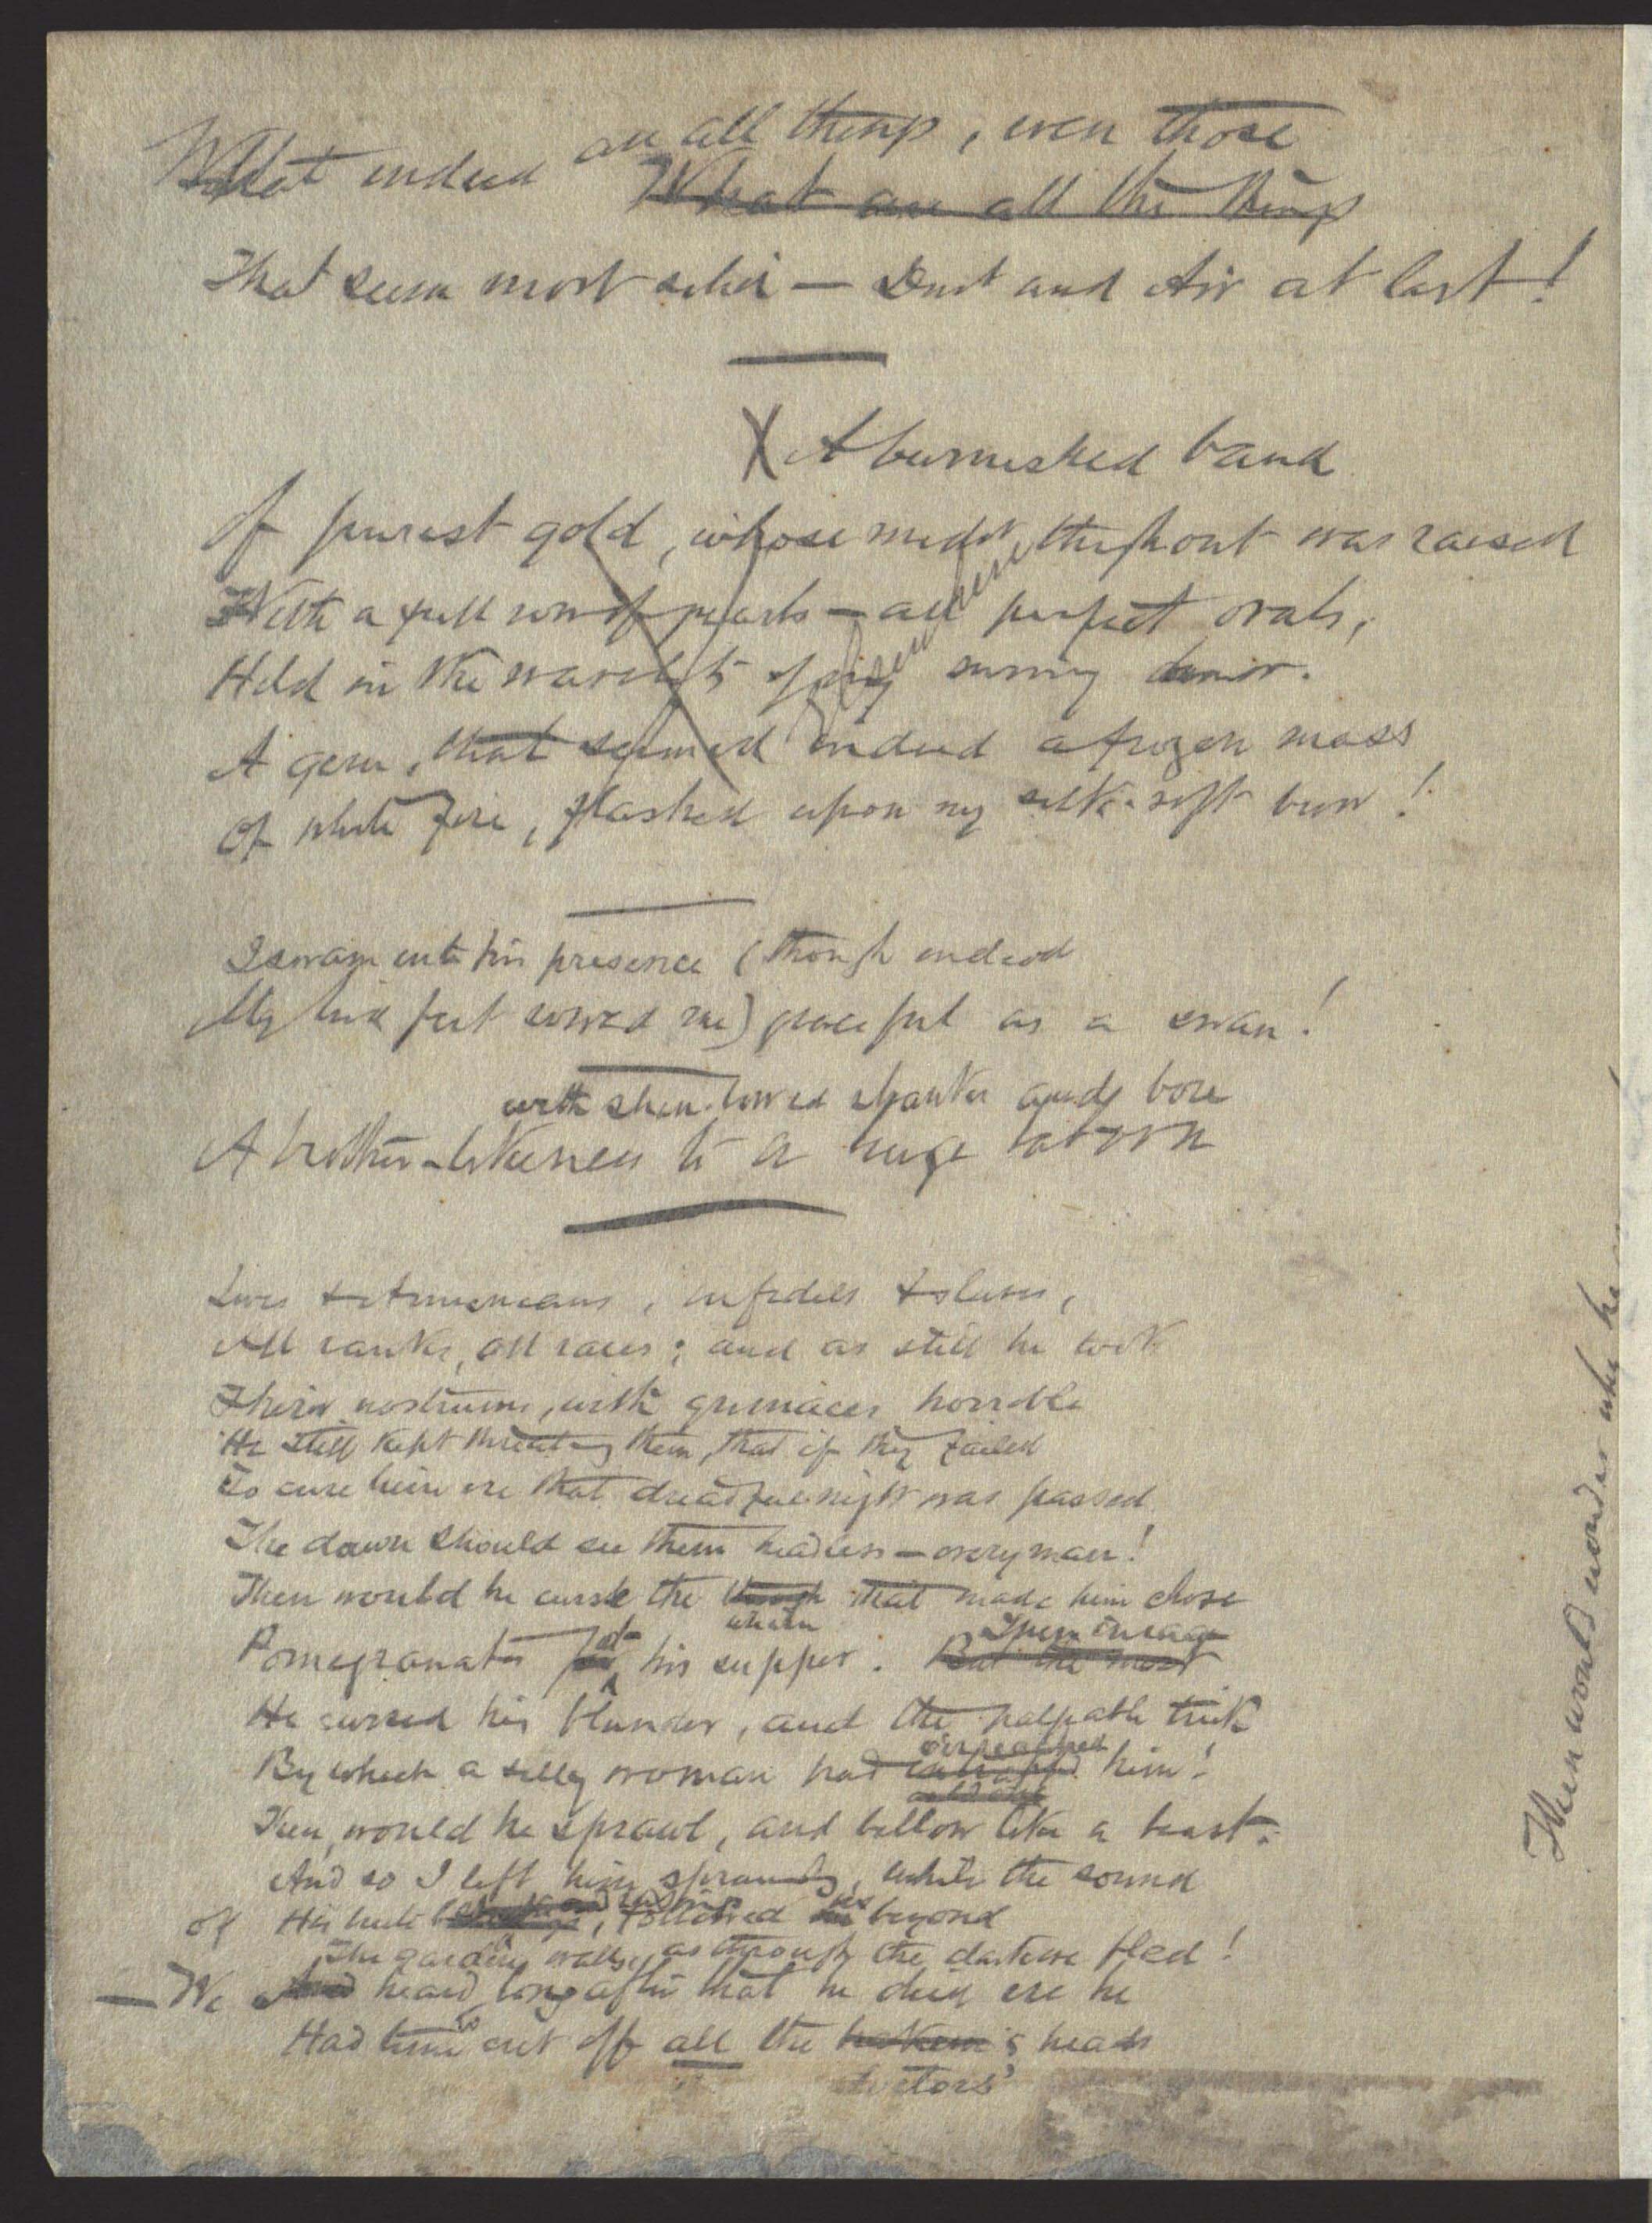 are all things, even those
What indeed What are all the things
That seem most solid — Dust and Air at last!
X A burnished band
Of purest gold, whose midst throughout was raised
With a full row of pearls — all perfect ovals,
Held in the waves of my sunny hair.
A gem, that seemed indeed a frozen mass
Of white fire, flashed upon my silk-soft brow!
I swam into his presence (though indeed
My hind feet rowed me) graceful as a swan!
with skew-bowed shanks and bore
A brother-likeness to a huge baboon
Jews & Armenians, infidels & slaves,
All ranks, all races; and as still he took
Their nostrums, with grimaces horrible
He still kept threat'ng them, that if they failed
To cure him ere that dreadful night was passed
The dawn should see them headless — every man!
Then would he curse the that made him chose
whim
Pomegranates for his supper. But the most
Then in rage
He cursed his blunder, and the palpable trick
o'erreached
By which a silly woman had him!
Then would he sprawl, and bellow like a beast.
And so I left him sprawling, while the sound
of His followed us beyond
The garden walls, as through the darkness fled!
— We And heard long after that he died ere he
Had time to cut off all the hakem's heads
doctors'
Then would wonder why he